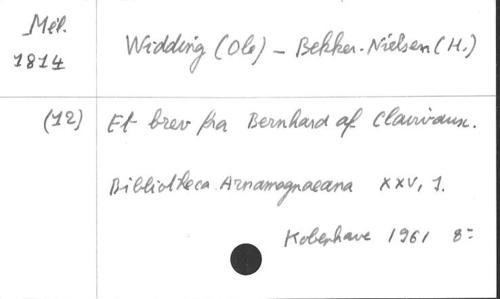 Mél. Widding (Ole) - Bekker-Nielsen (H.)
1814
(12) Et brev fra Bernhard af Clairvaux.
Bibliotheca Arnamagnaeana XXV, 1.
Kobenhave 1961 8=